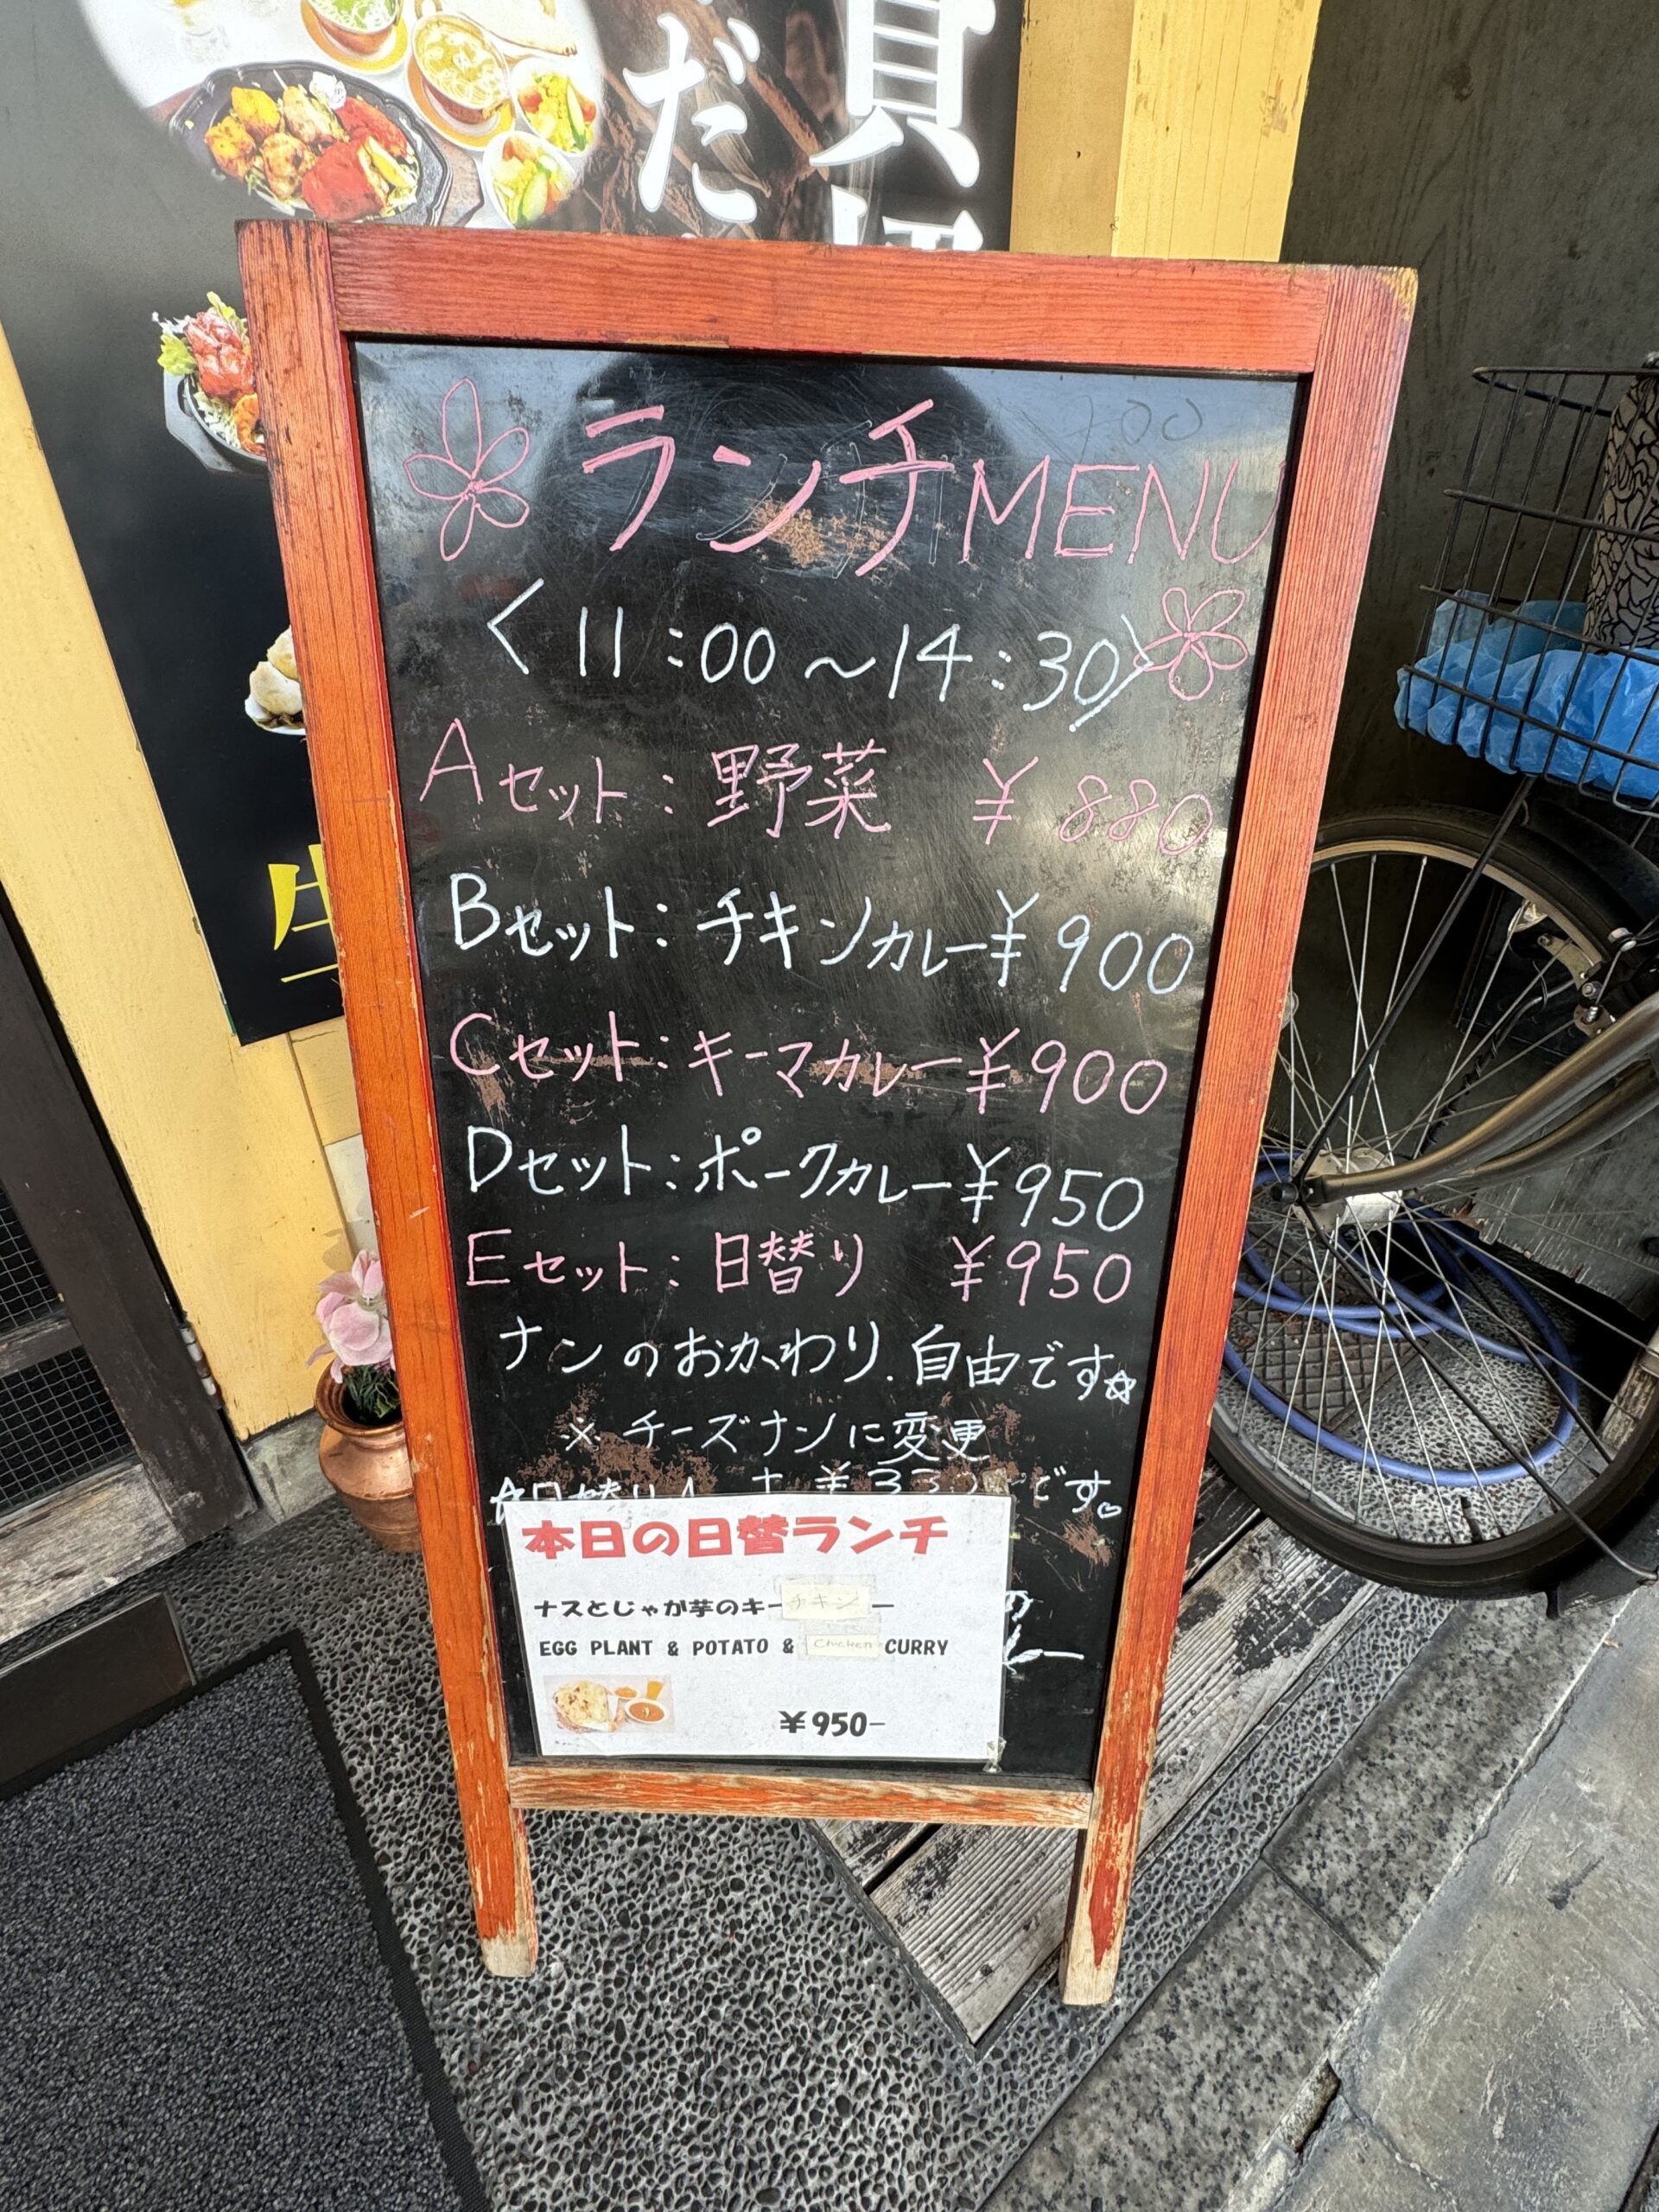 だ
ランチMENU
<11:00~14:30>
Aセット:野菜 ¥880
Bセット:チキンカレー¥900
Cセット:キーマカレー¥900
Dセット:ポークカレー¥950
Eセット:日替り ¥950
ナンのおかわり.自由です☆
※チーズナンに変更
☆日替り +¥330 です。
本日の日替ランチ
ナスとじゃが芋のキーチキンー
の
EGG PLANT & POTATO & Chicken CURRY
¥950-